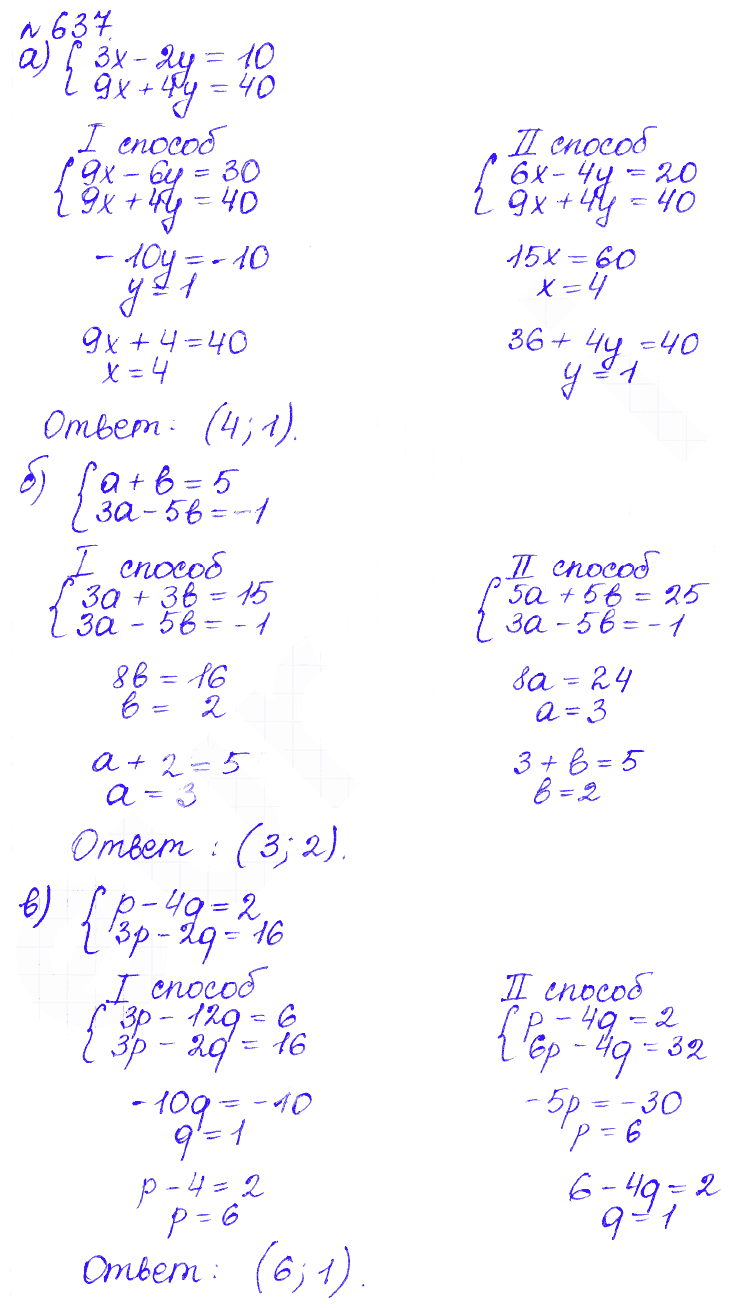 №637.
а) { 3x - 2y = 10
9x + 4y = 40
I способ
{ 9x - 6y = 30
9x + 4y = 40
- 10y = - 10
y = 1
9x + 4 = 40
x = 4
II способ
{ 6x - 4y = 20
9x + 4y = 40
15x = 60
x = 4
36 + 4y = 40
y = 1
Ответ: (4; 1).
б) { a + b = 5
3a - 5b = -1
I способ
{ 3a + 3b = 15
3a - 5b = -1
8b = 16
b = 2
a + 2 = 5
a = 3
II способ
{ 5a + 5b = 25
3a - 5b = -1
8a = 24
a = 3
3 + b = 5
b = 2
Ответ: (3; 2).
в) { p - 4q = 2
3p - 2q = 16
I способ
{ 3p - 12q = 6
3p - 2q = 16
-10q = -10
q = 1
p - 4 = 2
p = 6
II способ
{ p - 4q = 2
6p - 4q = 32
-5p = -30
p = 6
6 - 4q = 2
q = 1
Ответ: (6; 1).